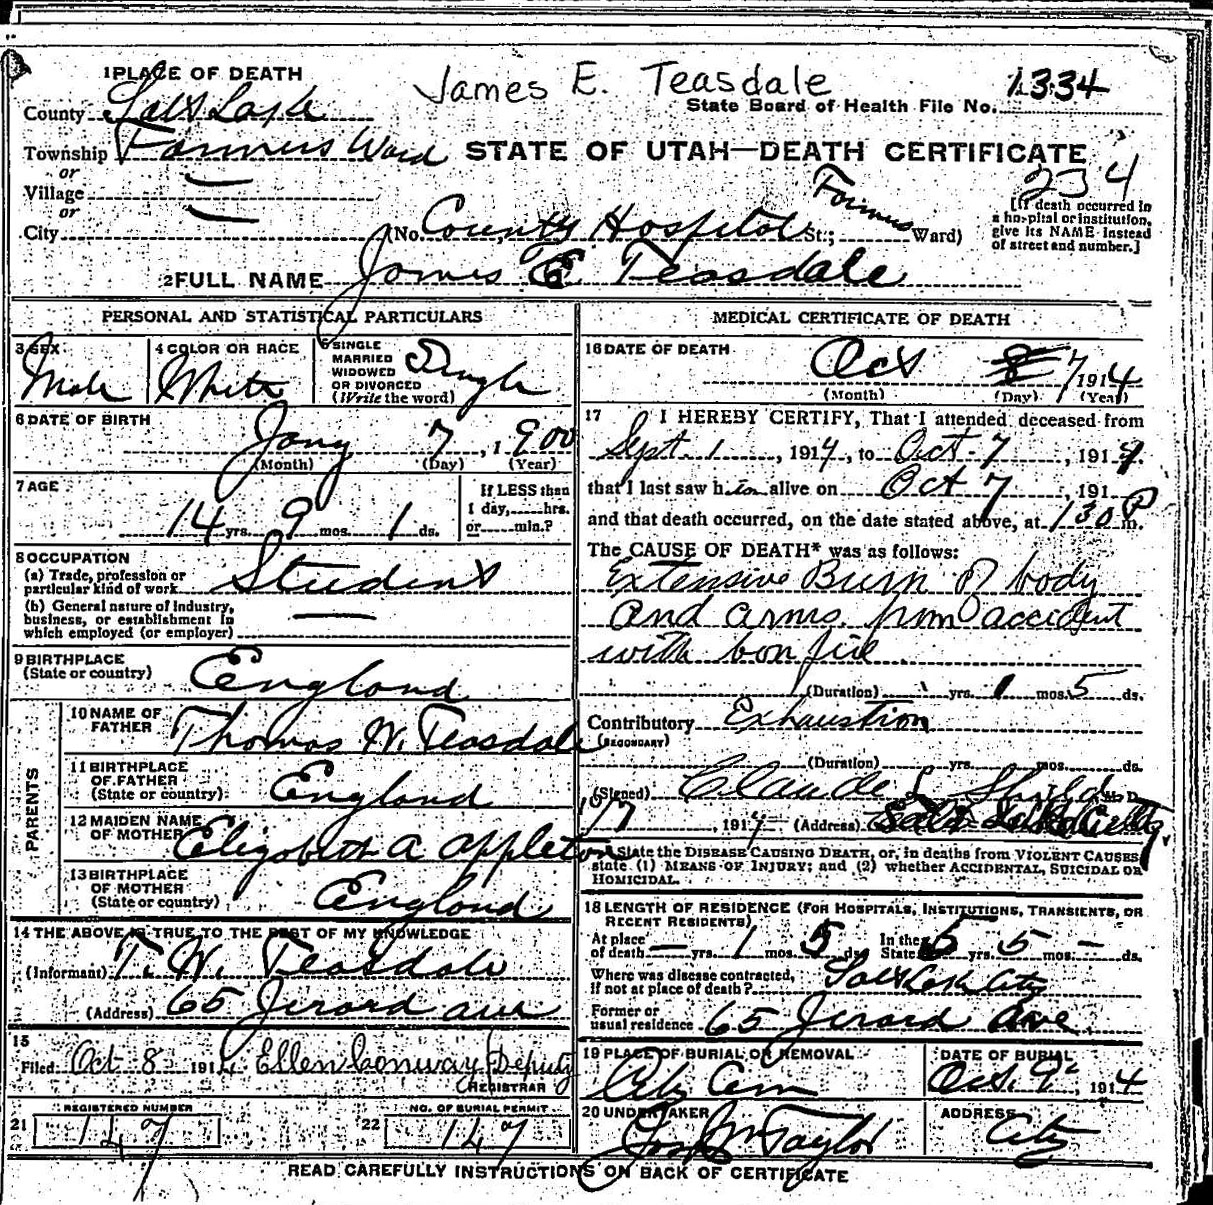 1 PLACE OF DEATH
James E. Teasdale
1334
State Board of Health File No.
County Salt Lake
Township Farmers Ward
STATE OF UTAH—DEATH CERTIFICATE
234
or
Village —
or
City —
(No. County Hospital St.; Farmers Ward)
[If death occurred in
a hospital or institution,
give its NAME instead
of street and number.]
2 FULL NAME James E. Teasdale
PERSONAL AND STATISTICAL PARTICULARS
3 SEX
Male
4 COLOR OR RACE
White
5 SINGLE
MARRIED
WIDOWED
OR DIVORCED
(Write the word)
Single
6 DATE OF BIRTH
Jany 7, 1900
(Month) (Day) (Year)
7 AGE
14 yrs. 9 mos. 1 ds.
If LESS than
1 day, hrs.
or min.?
8 OCCUPATION
(a) Trade, profession or
particular kind of work Student
(b) General nature of industry,
business, or establishment in
which employed (or employer) —
9 BIRTHPLACE
(State or country) England
PARENTS
10 NAME OF
FATHER Thomas W. Teasdale
11 BIRTHPLACE
OF FATHER
(State or country) England
12 MAIDEN NAME
OF MOTHER Elizabeth A Appleton
13 BIRTHPLACE
OF MOTHER
(State or country) England
14 THE ABOVE IS TRUE TO THE BEST OF MY KNOWLEDGE
(Informant) T. W. Teasdale
(Address) 65 Jerard ave
15
Filed Oct 8 1914 Ellen Conway Deputy
REGISTRAR
REGISTERED NUMBER
21 147
NO. OF BURIAL PERMIT
22 147
MEDICAL CERTIFICATE OF DEATH
16 DATE OF DEATH
Oct 8 7 1914
(Month) (Day) (Year)
17 I HEREBY CERTIFY, That I attended deceased from
Sept. 1, 1914, to Oct. 7, 1914.
that I last saw him alive on Oct 7, 191
and that death occurred, on the date stated above, at 130 P m.
The CAUSE OF DEATH* was as follows:
Extensive Burn of body
and arms. from accident
with bon fire
(Duration) yrs. 1 mos. 5 ds.
Contributory Exhaustion
(SECONDARY)
(Duration) yrs. mos. ds.
(Signed) Claude L. Shields M. D.
, 1914 (Address) Salt Lake City
State the DISEASE CAUSING DEATH, or, in deaths from VIOLENT CAUSES,
state (1) MEANS OF INJURY; and (2) whether ACCIDENTAL, SUICIDAL OR
HOMICIDAL.
18 LENGTH OF RESIDENCE (FOR HOSPITALS, INSTITUTIONS, TRANSIENTS, OR
RECENT RESIDENTS)
At place
of death — yrs. 1 mos. 5 ds. In the
State 5 yrs. 5 mos. — ds.
Where was disease contracted,
if not at place of death? Salt Lake City
Former or
usual residence 65 Jerard Ave
19 PLACE OF BURIAL OR REMOVAL
City Cem
DATE OF BURIAL
Oct. 9 1914
20 UNDERTAKER
Jos Wm Taylor
ADDRESS
City
READ CAREFULLY INSTRUCTIONS ON BACK OF CERTIFICATE